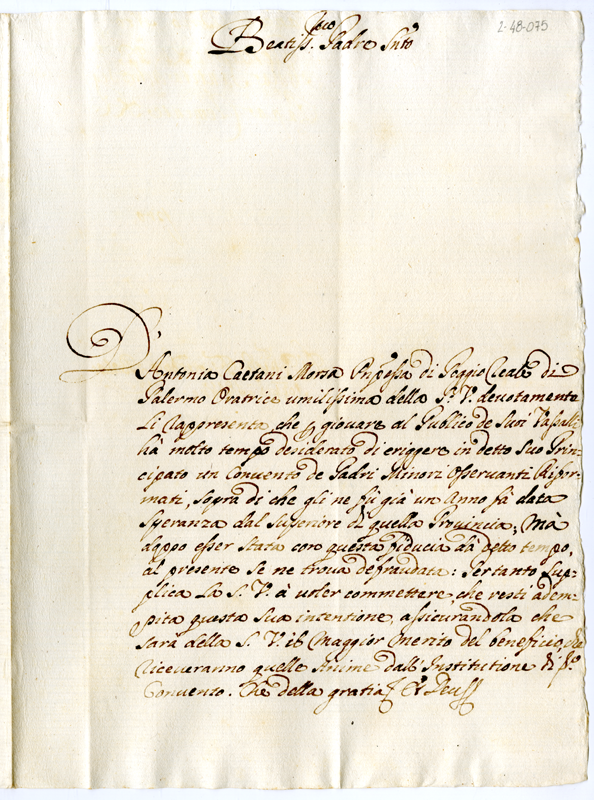 2-48-075
Beatiss.mo Padre
D.
Antonia Caetani Morsa Pnpessa di Poggio Reale di
Palermo Oratrice umilissima della S.V. devotamente
Li rapresenta che p giovare al Publico de Suoi Vassalli
hà molto tempo desiderato di eriggere in detto Suo Prin-
cipato un Convento de Padri Minori Osservanti Rifor-
mati, sopra di che gli ne fù già un Anno fà data
speranza dal Superiore di quella Provincia; mà
doppo esser stata con questa fiducia dà detto tempo,
al presente se ne trova defraudata: Pertanto Sup-
plica La S. V. à voler commettere, che resti adem-
pita questa Sua intentione, assicurandola che
sarà della S. V. il Maggior merito del beneficio, che
riceveranno quelle Anime dall'Institutione di
Convento. Che della gratia &. Deus